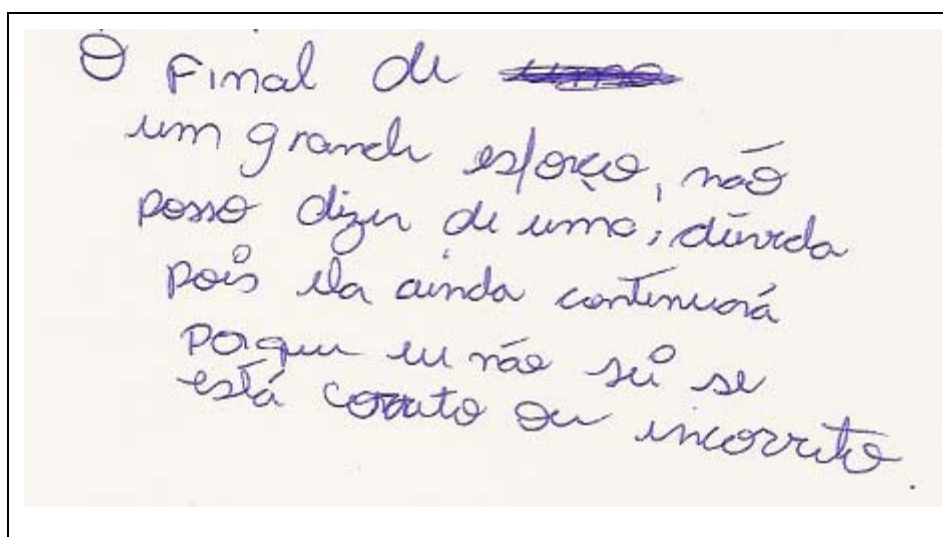 O Final de
um grande esforço, não
posso dizer de uma, dúvida
pois ela ainda continuará
porque eu não sei se
está correto ou incorreto.